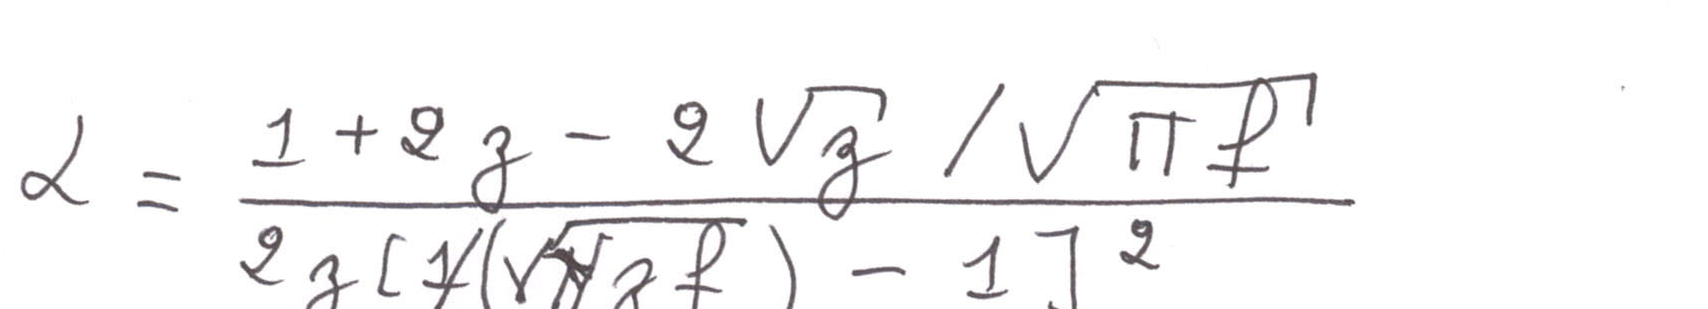 α = (1 + 2z - 2√z / √(πf)) / (2z[1/(√(πzf)) - 1]²)